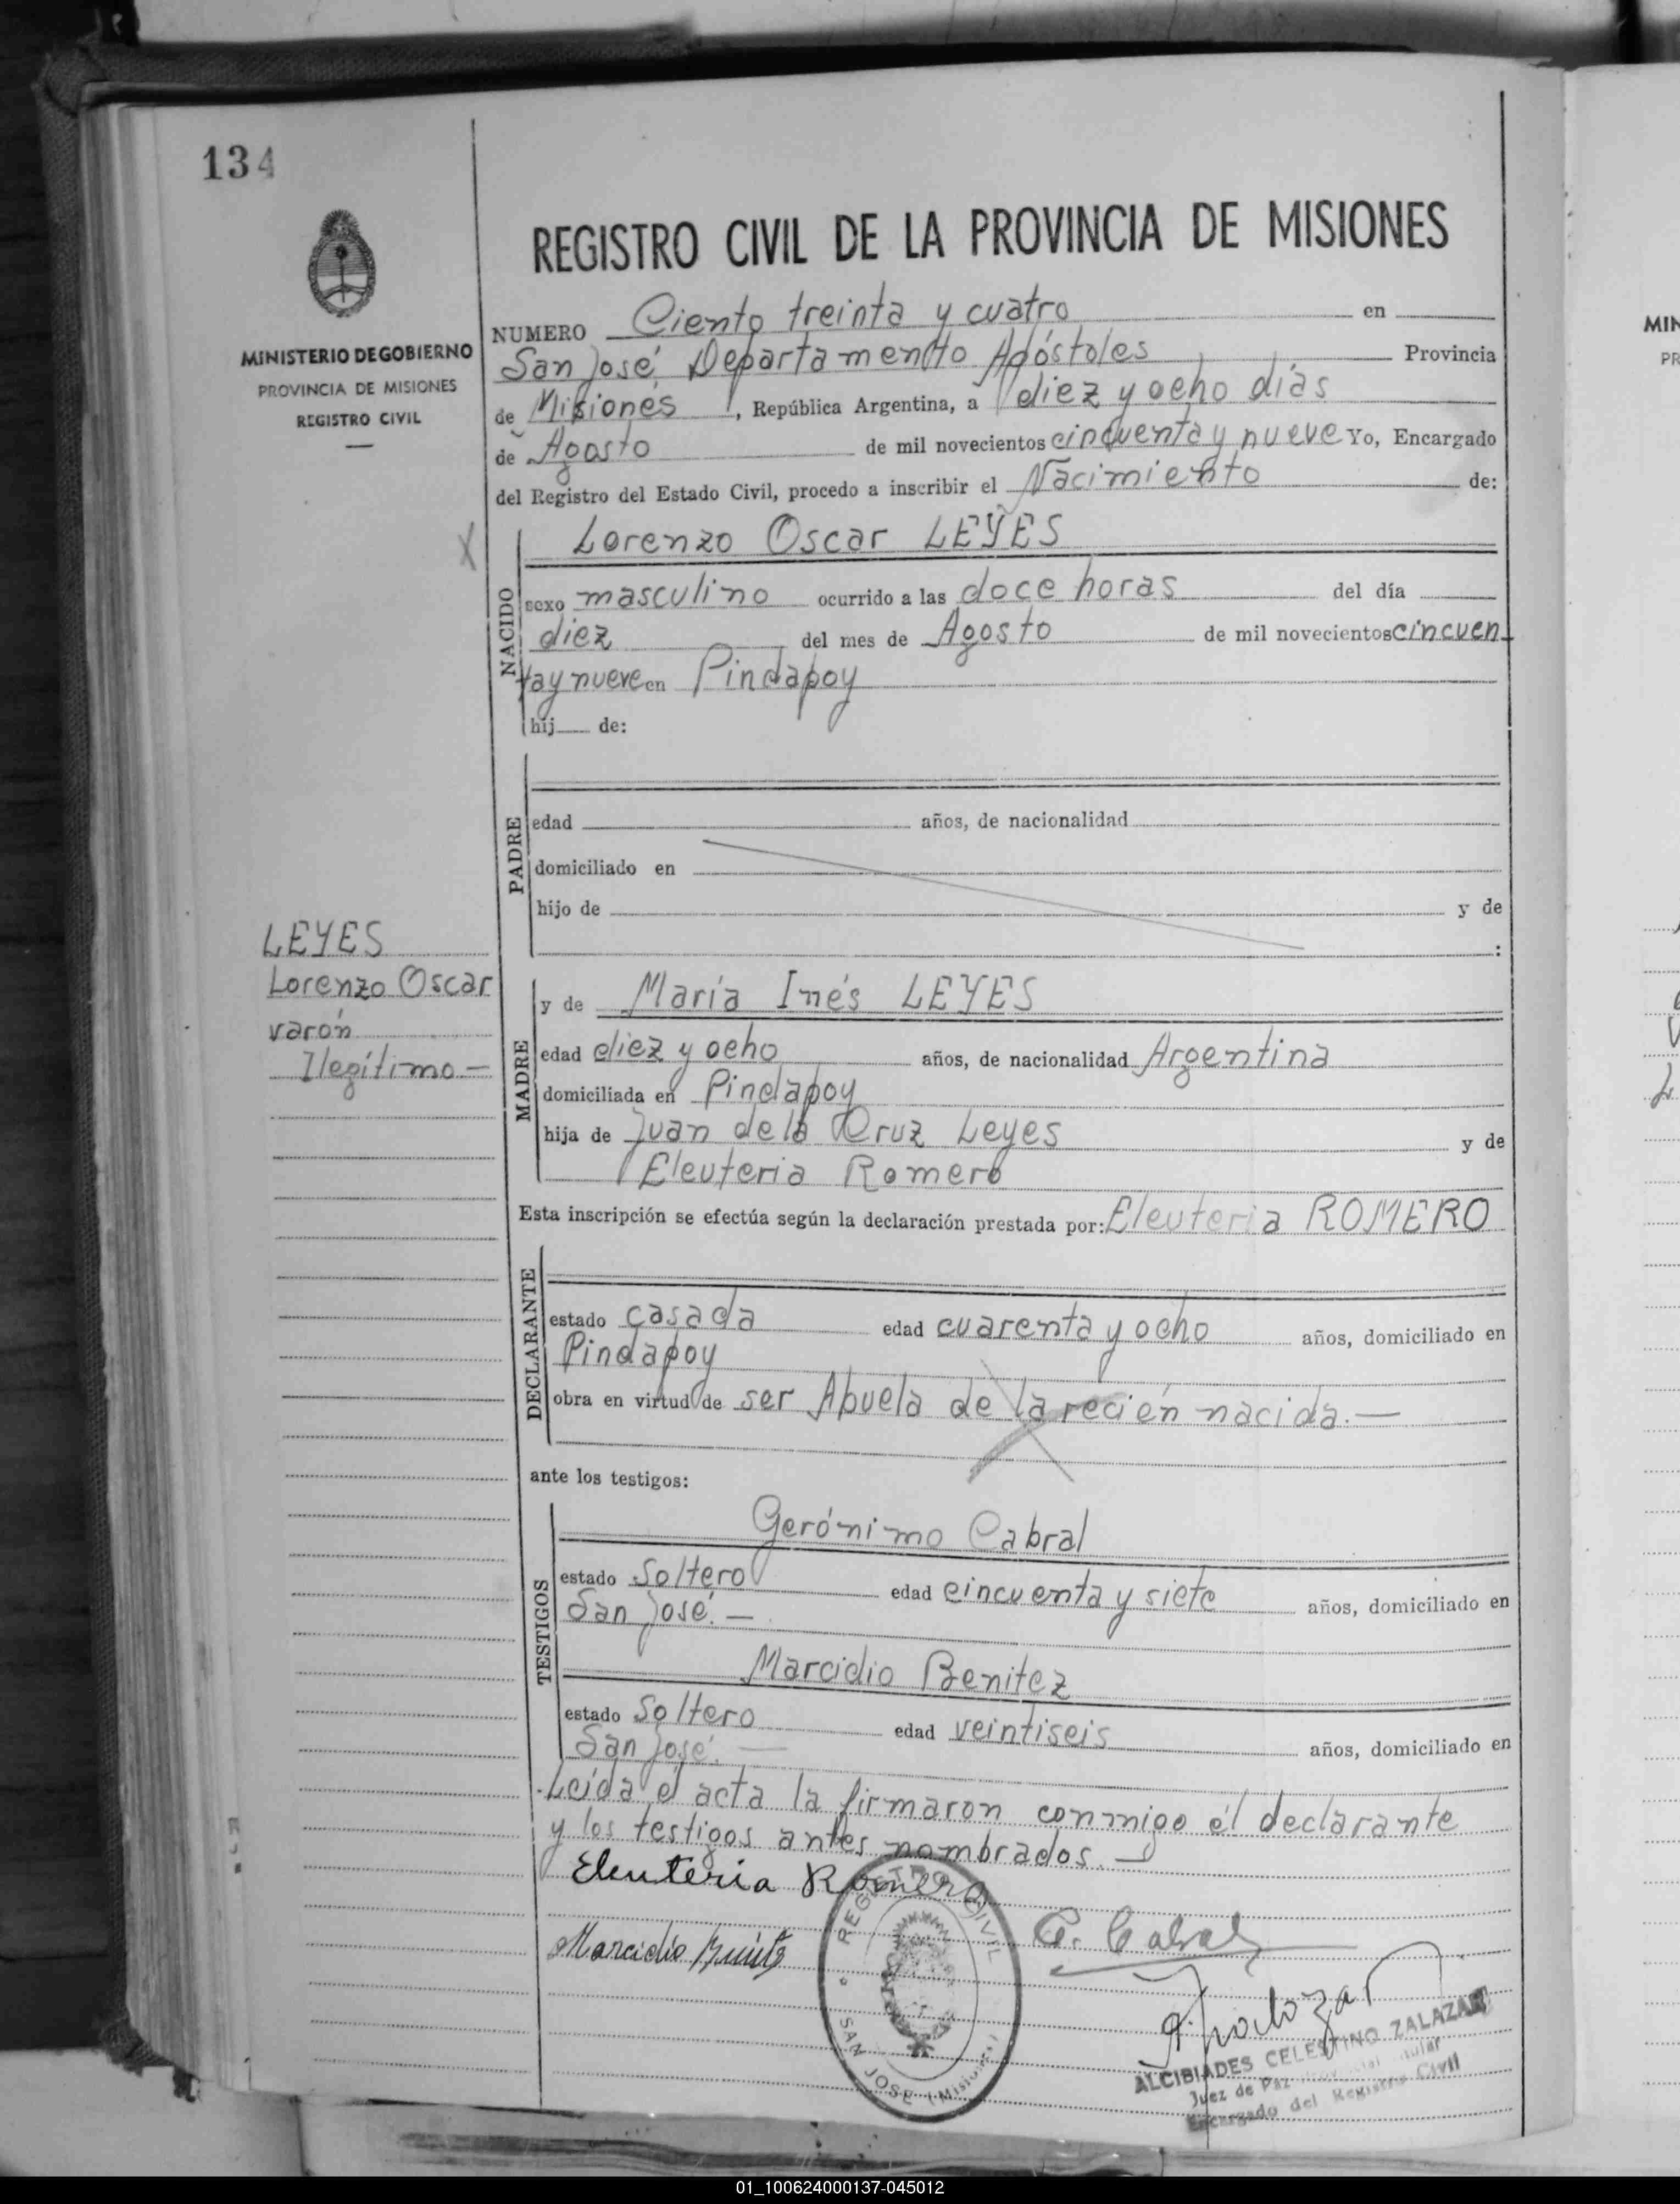 134
MINISTERIO DE GOBIERNO
PROVINCIA DE MISIONES
REGISTRO CIVIL
REGISTRO CIVIL DE LA PROVINCIA DE MISIONES
NUMERO Ciento treinta y cuatro en
San José, Departamento Apóstoles Provincia
de Misiones, República Argentina, a diez y ocho días
de Agosto de mil novecientos cincuenta y nueve Yo, Encargado
del Registro del Estado Civil, procedo a inscribir el Nacimiento de:
X
NACIDO
Lorenzo Oscar LEYES
sexo masculino ocurrido a las doce horas del día
diez del mes de Agosto de mil novecientos cincuen
ta y nueve en Pindapoy
hij de:
PADRE
edad años, de nacionalidad
domiciliado en
hijo de y de
:
LEYES
Lorenzo Oscar
varón
Ilegítimo —
MADRE
y de María Inés LEYES
edad diez y ocho años, de nacionalidad Argentina
domiciliada en Pindapoy
hija de Juan de la Cruz Leyes y de
Eleuteria Romero
Esta inscripción se efectúa según la declaración prestada por: Eleuteria ROMERO
DECLARANTE
estado casada edad cuarenta y ocho años, domiciliado en
Pindapoy
obra en virtud de ser Abuela de la recién nacida. —
ante los testigos:
TESTIGOS
Gerónimo Cabral
estado Soltero edad cincuenta y siete años, domiciliado en
San José. —
Marcidio Benitez
estado Soltero edad veintiseis años, domiciliado en
San José. —
Leida el acta la firmaron conmigo él declarante
y los testigos antes nombrados. —
Eleuteria Romero
G. Cabral
Marcidio Benitez
REGISTRO CIVIL
SAN JOSE (Misiones)
ALCIBIADES CELESTINO ZALAZAR
Juez de Paz Titular
Encargado del Registro Civil
MIN
PR
01_100624000137-045012